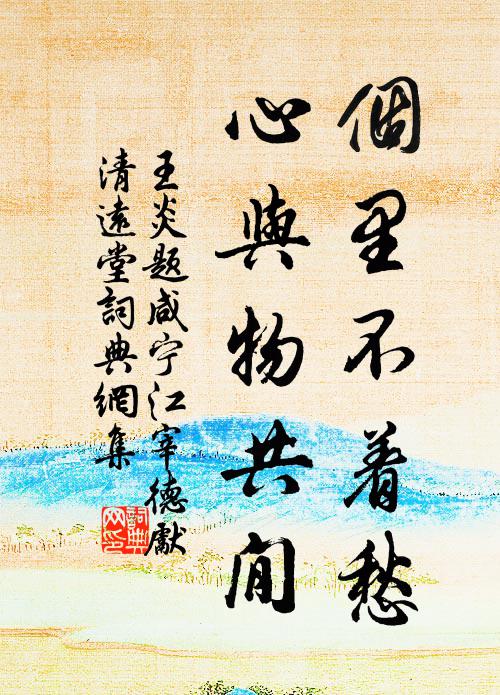 個里不着愁
心與物共閒
王炎題咸宁江宰德獻
清遠堂詞典網集
詞典
网印